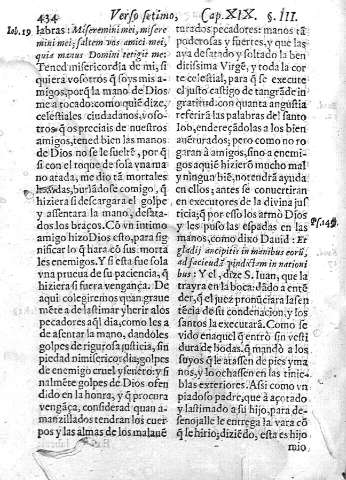 434 Verso setimo, Cap. XIX. §. III.
Iob. 19
labras: Miseremini mei, misere
mini mei, saltem vos amici mei,
quia manus Domini tetigit me:
Tened misericordia de mi, si
quiera vosotros q̃ soys mis a-
migos, porq̃ la mano de Dios
me a tocado: como quiẽ dize,
celestiales ciudadanos, voso-
tros q̃ os preciais de nuestros
amigos, tened bien las manos
de Dios no se le suelte, por q̃
si con el toque de sola vna ma
no atada, me dio tã mortales
burlãdose comigo, q̃
hiziera si descargara el golpe
y assentara la mano, desata-
dos los braços. Cõ vn intimo
amigo hizo Dios esto, para sig
nificar lo q̃ hara cõ sus morta
les enemigos. Y si esta fue sola
vna prueua de su paciencia, q̃
hiziera si fuera vengança. De
aqui colegiremos quan graue
mẽte a de lastimar y herir alos
pecadores aql̃ dia, como les a
de asentar la mano, dandoles
golpes de rigurosa justicia, sin
piedad ni misericordia; golpes
de enemigo cruel y seuero: y si
nalmẽte golpes de Dios ofen
dido en la honra, y q̃ procura
vengãça, considerad quan a-
manzillados tendran los cuer
pos y las almas de los malauẽ
turados pecadores: manos tã
poderosas y fuertes, y que las
aya desatado y soltado la ben
ditissima Virgẽ, y toda la cor
te celestial, para q̃ se execute
el justo castigo de tan grãde in
gratitud. con quanta angustia
referirã las palabras del santo
Iob, endereçãdolas a los bien
auẽturados; pero como no ro
garan a amigos, sino a enemi-
gos aquiẽ hizierõ mucho mal
y ningun biẽ, no tendrã ayuda
en ellos; antes se conuertiran
en executores de la diuina jus
ticia; q̃ por esso los armò Dios
y les puso las espadas en las
manos, como dixo Dauid: Et
Ps. 149.
gladij ancipites in manibus eorũ,
ad faciendã vindictam in nationi
bus: Y el, dize S. Iuan, que la
trayra en la boca: dãdo a entẽ
der, q̃ el juez pronũciara la sẽ
tẽcia de su condenacion, y los
santos la executarã. Como se
vido en aquel q̃ entrò sin vesti
dura de bodas, q̃ mandò a los
suyos q̃ le atassen de pies y ma
nos, y lo echassen en las tinie-
blas exteriores. Assi como vn
piadoso padre, que à açotado
y lastimado a su hijo, para de-
senojalle le entrega la vara cõ
q̃ le hirio; diziẽdo, esta es hijo
mio